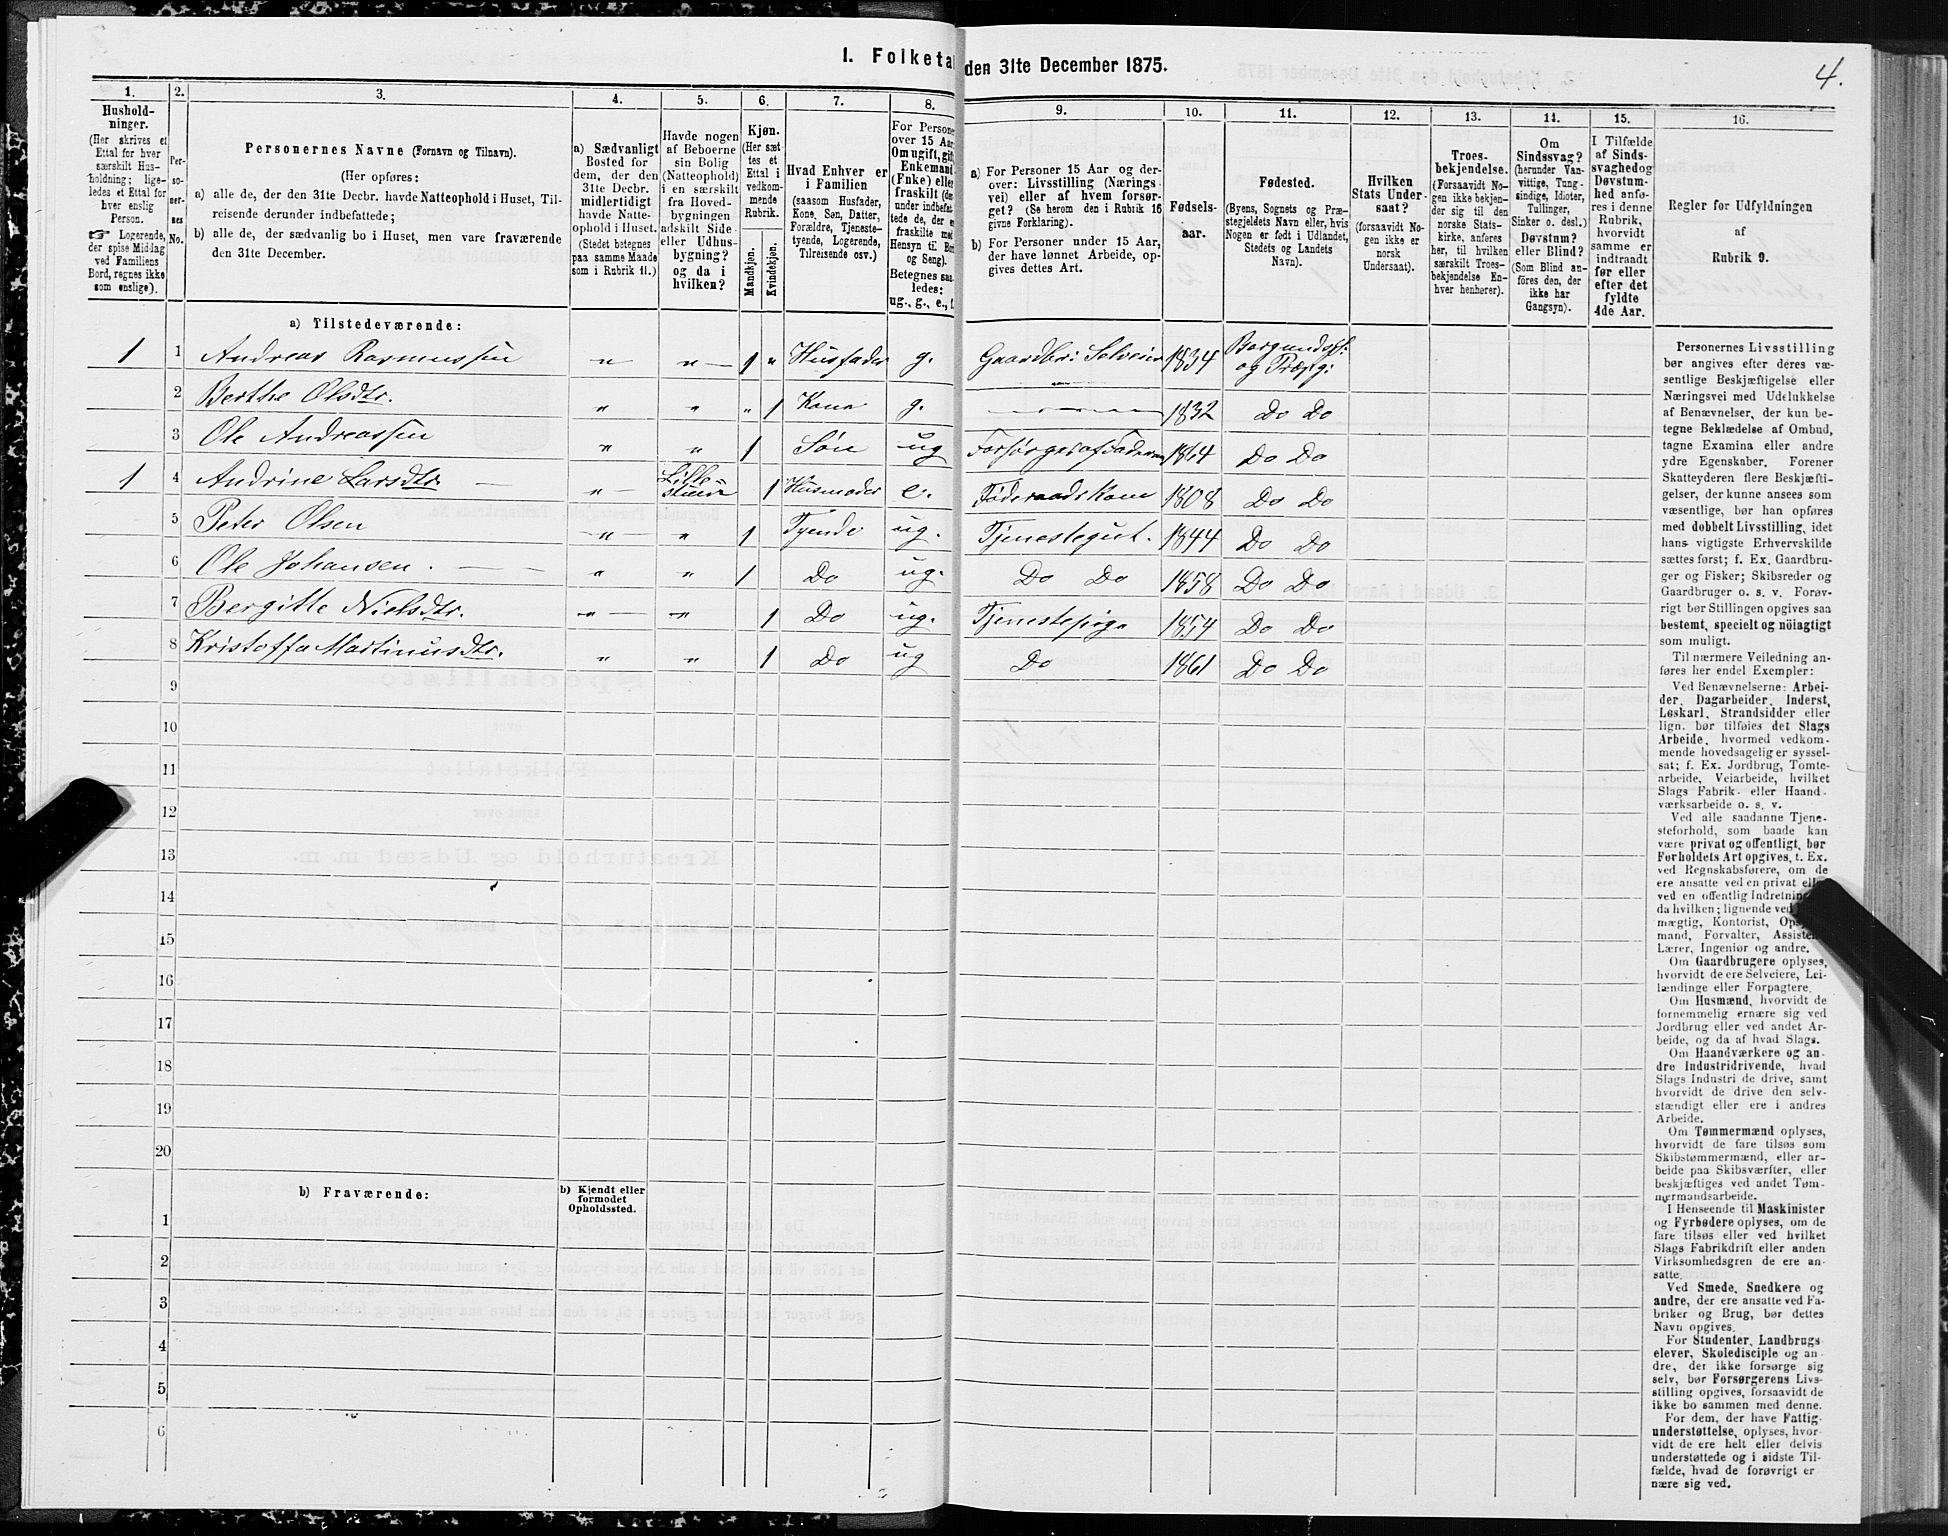 I. Folketal den 31te December 1875.
4.
1.
Hushold-
ninger.
(Her skrives et
Ettal for hver
særskilt Hus-
holdning; lige-
ledes et Ettal for
hver enslig
Person.
☞ Logerende,
der spise Middag
ved Familiens
Bord, regnes ikke
som enslige).
2.
Per-
so-
ner-
nes
No.
3.
Personernes Navne (Fornavn og Tilnavn).
(Her opføres:
a) alle de, der den 31te Decbr. havde Natteophold i Huset, Til-
reisende derunder indbefattede;
b) alle de, der sædvanlig bo i Huset, men vare fraværende
den 31te December.
4.
a) Sædvanligt
Bosted for
dem, der den
31te Decbr.
midlertidigt
havde Natte-
ophold i Huset.
(Stedet betegnes
paa samme Maade
som i Rubrik 11.)
5.
Havde nogen
af Beboerne
sin Bolig
(Natteophold)
i en særskilt
fra Hoved-
bygningen
adskilt Side-
eller Udhus-
bygning?
og da i
hvilken?
6.
Kjøn.
(Her sæt-
tes et
Ettal i
vedkom-
mende
Rubrik.
Mandkjøn.
Kvindekjøn.
7.
Hvad Enhver er
i Familien
(saasom Husfader,
Kone, Søn, Datter,
Forældre, Tjeneste-
tyende, Logerende,
Tilreisende osv.)
8.
For Persone
over 15 Aar
Om ugift, gif
Enkemand
(Enke) eller
fraskilt (de
under indbefat-
tede de, der e
fraskilte med
Hensyn til Bo
og Seng).
Betegnes saa-
ledes:
ug., g., e., f.
9.
a) For Personer 15 Aar og der-
over: Livsstilling (Nærings-
vei) eller af hvem forsør-
get? (Se herom den i Rubrik 16
givne Forklaring).
b) For Personer under 15 Aar,
der have lønnet Arbeide, op-
gives dettes Art.
10.
Fødsels-
aar.
11.
Fødested.
(Byens, Sognets og Præ-
stegjeldets Navn eller, hvis
Nogen er født i Udlandet,
Stedets og Landets
Navn).
12.
Hvilken
Stats Under-
saat?
(forsaavidt No-
gen ikke er
norsk
Undersaat).
13.
Troes-
bekjendelse.
(Forsaavidt No-
gen ikke bekjen-
der sig til den
norske Stats-
kirke, anføres
her, til hvilken
særskilt Troes-
bekjendelse En-
hver henhører).
14.
Om
Sindssvag?
(herunder Van-
vittige, Tung-
sindige, Idioter,
Tullinger,
Sinker o. desl.)
Døvstum?
eller Blind?
(Som Blind an-
føres den, der
ikke har
Gangsyn).
15.
I Tilfælde
af Sinds-
svaghed og
Døvstum-
hed anfø-
res i denne
Rubrik,
hvorvidt
samme er
indtraadt
før eller
efter det
fyldte
4de Aar.
16.
Regler for Udfyldningen
af
Rubrik 9.
a) Tilstedeværende:
1 1 Andreas Rasmussen " " 1 " Husfader g. Gaardbr: Selveier 1834 Borgundsgl: og Præstg:
2 Berthe Olsdtr. " " " 1 Kone g. 1832 Do Do
3 Ole Andreassen " " 1 Søn ug Forsørges af Faderen 1864 Do Do
1 4 Andrine Larsdtr " Lille-stuen 1 Husmoder e. Føderaads Kone 1808 Do Do
5 Peter Olsen " " 1 Tyende ug. Tjenestegut. 1844 Do Do
6 Ole Johansen. " " 1 Do ug. Do Do 1858 Do Do
7 Bergitte Nielsdtr. " " 1 Do ug. Tjenestepige 1854 Do Do
8 Kristoffa Martinusdtr. " " 1 Do ug Do 1861 Do Do
9
10
11
12
13
14
15
16
17
18
19
20
b) Fraværende:
b) Kjendt eller
formodet
Opholdssted.
1
2
3
4
5
6
Personernes Livsstilling
bør angives efter deres væ-
sentlige Beskjæftigelse eller
Næringsvei med Udelukkelse
af Benævnelser, der kun be-
tegne Beklædelse af Ombud,
tagne Examina eller andre
ydre Egenskaber. Forener
Skatteyderen flere Beskjæfti-
gelser, der kunne ansees som
væsentlige, bør han opføres
med dobbelt Livsstilling, idet
hans vigtigste Erhvervskilde
sættes først; f. Ex. Gaardbru-
ger og Fisker; Skibsreder og
Gaardbruger o. s. v. Forøv-
rigt bør Stillingen opgives saa
bestemt, specielt og nöiagtigt
som muligt.
Til nærmere Veiledning an-
føres her endel Exempler:
Ved Benævnelserne: Arbei-
der, Dagarbeider, Inderst,
Løskarl, Strandsidder eller
lign. bør tilføies det Slags
Arbeide, hvormed vedkom-
mende hovedsagelig er syssel-
sat; f. Ex. Jordbrug, Tomte-
arbeide, Veiarbeide, hvilket
Slags Fabrik- eller Haand-
værksarbeide o. s. v.
Ved alle saadanne Tjene-
steforhold, som baade kan
være privat og offentligt, bør
Forholdets Art opgives, t. Ex.
ved Regnskabsførere, om de
ere ansatte ved en privat eller
ved en offentlig Indretning
da hvilken; lignende ved
mægtig, Kontorist, Opsyns-
mand, Forvalter, Assistent
Lærer, Ingeniør og andre.
Om Gaardbrugere oplyses,
hvorvidt de ere Selveiere, Lei-
lændinge eller Forpagtere.
Om Husmænd, hvorvidt de
fornemmelig ernære sig ved
Jordbrug eller ved andet Ar-
beide, og da af hvad Slags.
Om Haandværkere og an-
dre Industridrivende, hvad
Slags Industri de drive, samt
hvorvidt de drive den selv-
stændigt eller ere i andres
Arbeide.
Om Tømmermænd oplyses,
hvorvidt de fare tilsøs som
Skibstømmermænd, eller ar-
beide paa Skibsværfter, eller
beskjæftiges ved andet Tøm-
mermandsarbeide.
I Henseende til Maskinister
og Fyrbødere oplyses, om de
fare tilsøs eller ved hvilket
Slags Fabrikdrift eller anden
Virksomhedsgren de ere an-
satte.
Ved Smede, Snedkere og
andre, der ere ansatte ved Fa-
briker og Brug, bør dettes
Navn opgives.
For Studenter, Landbrugs-
elever, Skoledisciple og an-
dre, der ikke forsørge sig
selv, bør Forsørgerens Livs-
stilling opgives, forsaavidt de
ikke bo sammen med denne.
For dem, der have Fattig-
understøttelse, oplyses, hvor-
vidt de ere helt eller delvis
understøttede og i sidste Til-
fælde, hvad de forøvrigt er
nære sig ved.